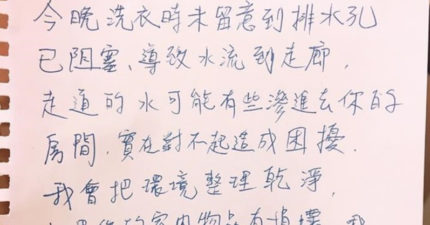 今晚洗衣時未留意到排水孔
已阻塞、導致水流到走廊，
走道的水可能有些滲進去你的
房間，實在對不起造成困擾．
我會把環境整理乾淨，
物品有損壞，我